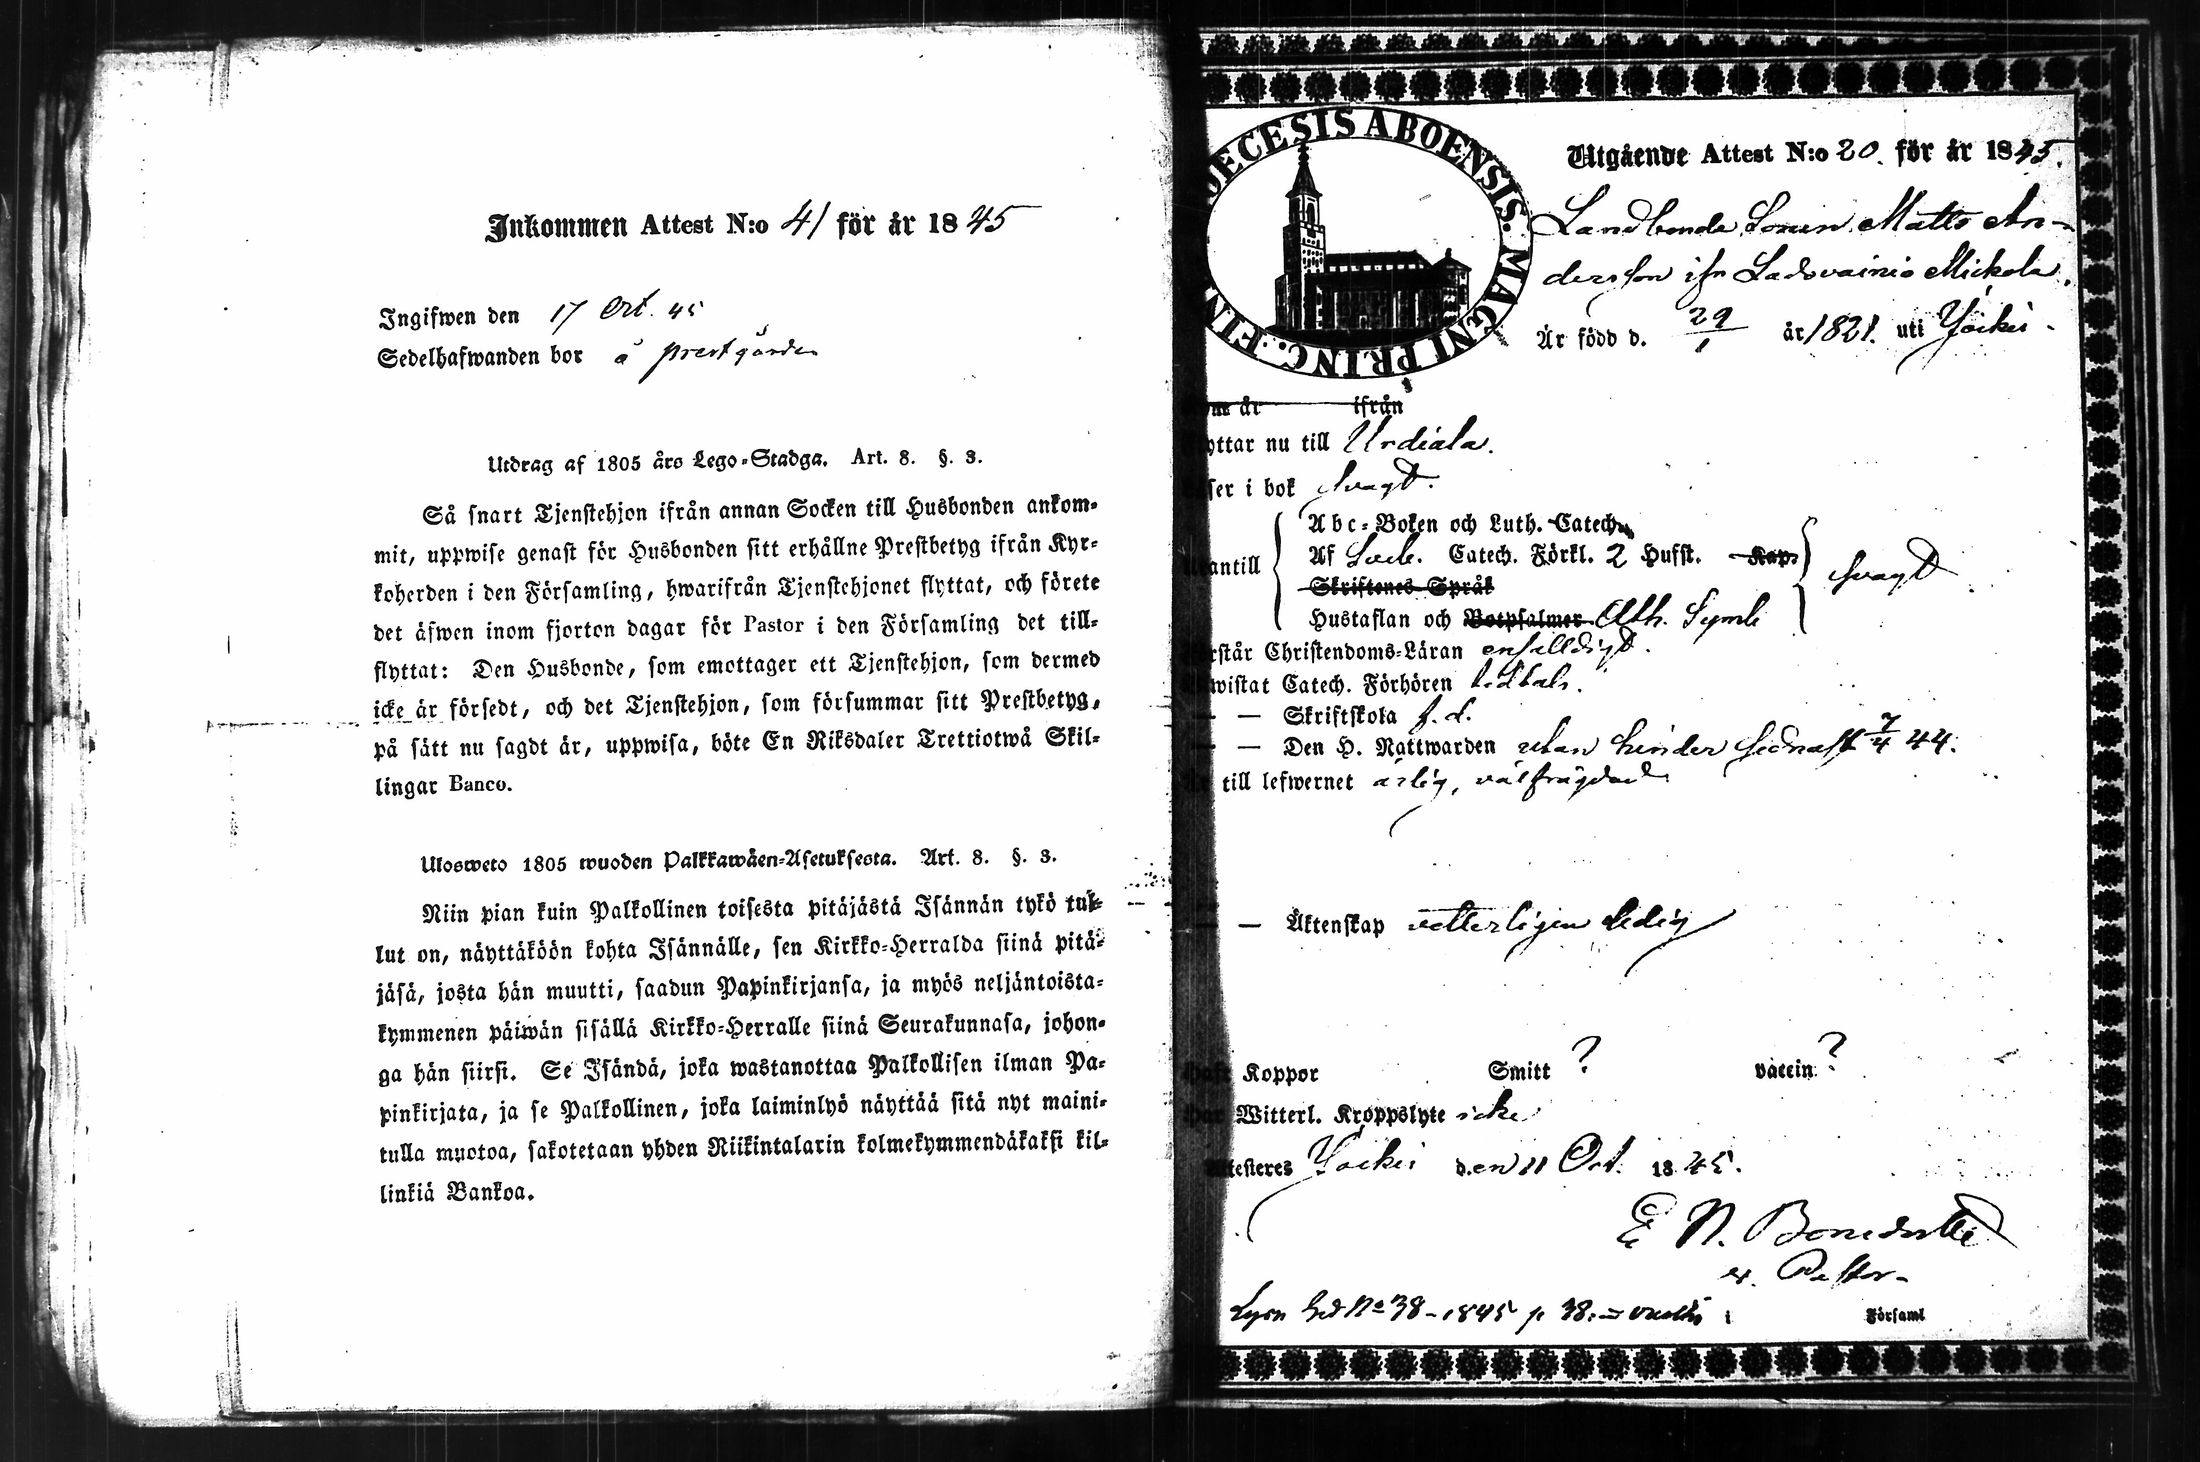 Inkommen Attest N:o 41 för år 1845
Ingifwen den 17 Oct. 45
Sedelhafwanden bor å prestgården
Utdrag af 1805 års Lego-Stadga. Art. 8. §. 3.
Så snart Tjenstehjon ifrån annan Socken till Husbonden ankom-
mit, uppwise genast för Husbonden sitt erhållne Prestbetyg ifrån Kyr-
koherden i den Församling, hwarifrån Tjenstehjonet flyttat, och förete
det äfwen inom fjorton dagar för Pastor i den Församling det till-
flyttat: Den Husbonde, som emottager ett Tjenstehjon, som dermed
icke är försedt, och det Tjenstehjon, som försummar sitt Prestbetyg,
på sätt nu sagdt är, uppwisa, böte En Riksdaler Trettiotwå Skil-
lingar Banco.
Ulosweto 1805 wuoden Palkkawäen-Asetuksesta. Art. 8. §. 3.
Niin pian kuin Palkollinen toisesta pitäjästä Isännän tykö tul-
lut on, näyttäköön kohta Isännälle, sen Kirkko-Herralda siinä pitä-
jäsä, josta hän muutti, saadun Papinkirjansa, ja myös neljäntoista-
kymmenen päiwän sisällä Kirkko-Herralle siinä Seurakunnasa, johon-
ga hän siirsi. Se Isändä, joka wastanottaa Palkollisen ilman Pa-
pinkirjata, ja se Palkollinen, joka laiminlyö näyttää sitä nyt maini-
tulla muotoa, sakotetaan yhden Riikintalarin kolmekymmendäkaksi kil-
linkiä Bankoa.
DECESIS ABOENSIS. MAGNI PRINC. FIN
Utgående Attest N:o 20. för år 1845.
Landbonde Sonen Matts An-
dersson ifr Ladovainio Mickola.
Är född d. 29/1 år 1821. uti Jockis.
år ifrån
yttar nu till Urdiala.
ser i bok svagt.
Abc-Boken och Luth. Catech.
antill Af Catech. Förkl. 2 Hufst. Kap. svagt
Skriftenes Språk
Hustaflan och Botpsalmer Ath. Symb
rstår Christendoms-Läran enfalldigt.
wistat Catech. Förhören
— — Skriftskola
— — Den H. Nattwarden utan hinder sednast 7/4 44.
till lefwernet ärlig, välfrägdad
— — Äktenskap vetterligen ledig
Haft Koppor Smitt ? vaccin ?
Har Witterl. Kroppslyte icke
Attesteres Jockis den 11 Oct. 1845.
E N.
Pastor.
N:o 38 - 1845 p 38. i Församl